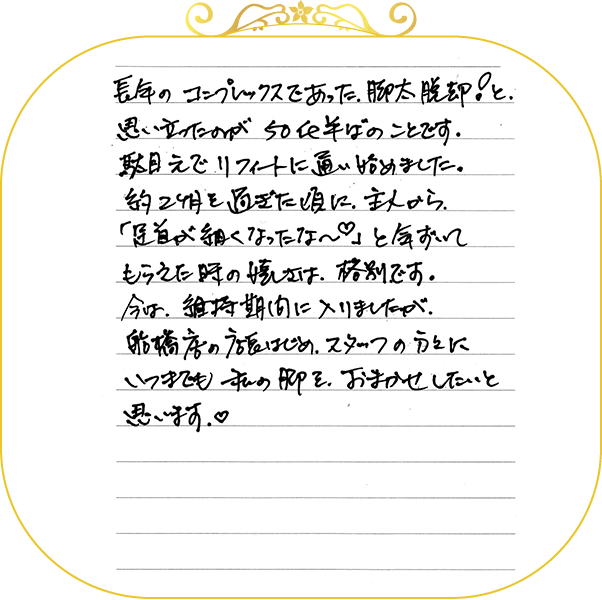 長年のコンプレックスであった、脚太脱却!と、
思い立ったのが 50代半ばのことです。
駄目元でリフィートに通い始めました。
約2ヶ月を過ぎた頃に、主人から、
「足首が細くなったな〜♡」と気づいて
もらえた時の嬉しさは、格別です。
今は、維持期間に入りましたが、
船橋店の店長はじめ、スタッフの方々に
いつまでも私の脚を、おまかせしたいと
思います。♡